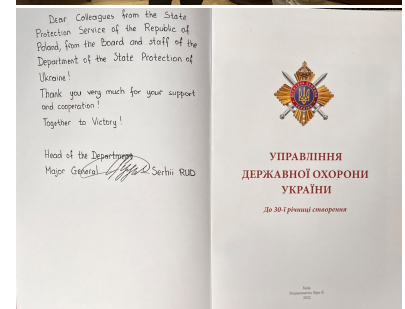 Dear Colleagues from the State
Protection Service of the Republic of
Poland, from the Board and staff of the
Department of the State Protection of
Ukraine!
Thank you very much for your support
and cooperation!
Together to Victory!
Head of the Department
Major General Serhii RUD
УПРАВЛІННЯ
ДЕРЖАВНОЇ ОХОРОНИ
УКРАЇНИ
До 30-ї річниці створення
Київ
2022